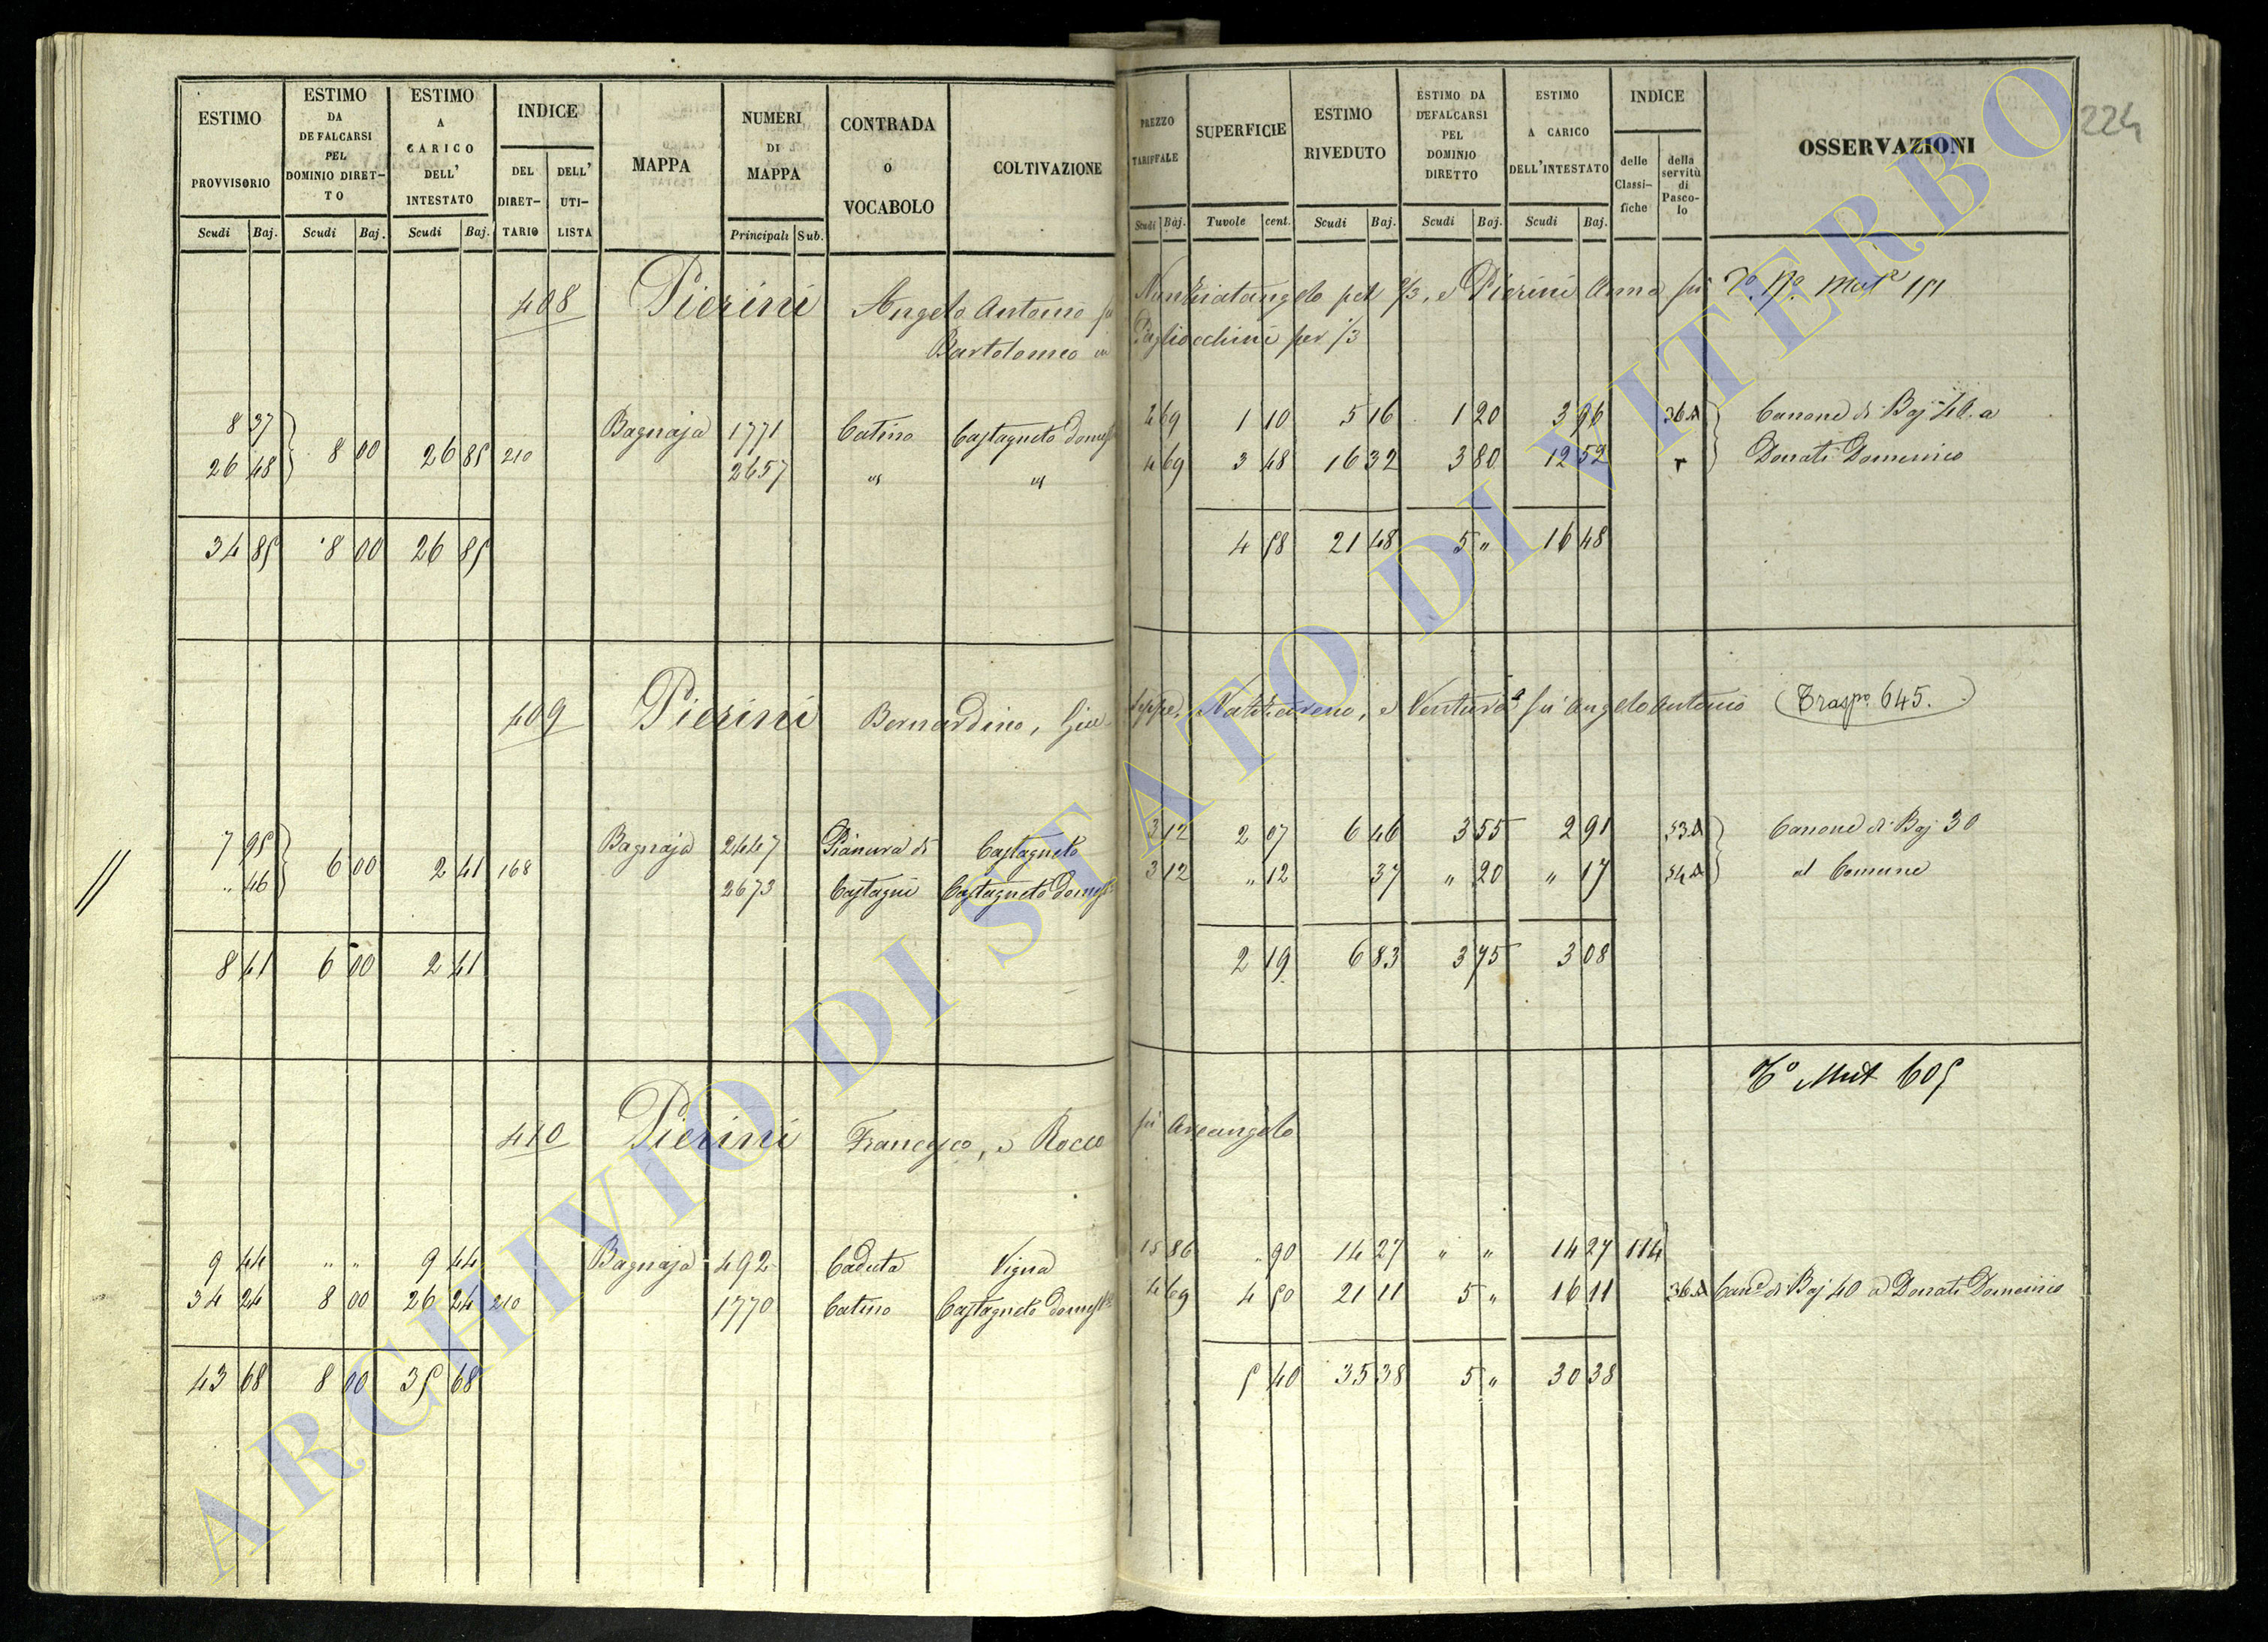 224
ESTIMO PROVVISORIO Scudi Baj.
ESTIMO DA DEFALCARSI PEL DOMINIO DIRET-TO Scudi Baj.
ESTIMO A CARICO DELL' INTESTATO Scudi Baj.
INDICE DEL DIRET-TARIO DELL' UTI-LISTA
MAPPA
NUMERI DI MAPPA Principali Sub.
CONTRADA o VOCABOLO
COLTIVAZIONE
PREZZO TARIFFALE Scudi Baj.
SUPERFICIE Tavole cent.
ESTIMO RIVEDUTO Scudi Baj.
ESTIMO DA DEFALCARSI PEL DOMINIO DIRETTO Scudi Baj.
ESTIMO A CARICO DELL'INTESTATO Scudi Baj.
INDICE delle Classi-fiche della servitù di Pasco-lo
OSSERVAZIONI
408 Pierini Angelo Antonio fu Nunziatangelo per 2/3, e Pierini Anna fu
Bartolomeo in Pagliocchini per 1/3
8 37 Bagnaja 1771 Catino Castagneto domest 4 69 1 10 5 16 1 20 3 96 36 A Canone di Baj 40 a
26 48 8 00 26 85 210 2657 " " 4 69 3 48 16 32 3 80 12 52 Donati Domenico
34 85 8 00 26 85 4 58 21 48 5 " 16 48
409 Pierini Bernardino, Giuseppe, Nazzareno, e Ventura fu Angelo Antonio Traspo 645.
7 95 Bagnaja 2447 Pianura di Castagneto 3 12 2 07 6 46 3 55 2 91 53 A Canone di Baj 30
" 46 6 00 2 41 168 2673 Castagni Castagneto domest 3 12 " 12 37 " 20 " 17 54 A al Comune
8 41 6 00 2 41 2 19 6 83 3 75 3 08
To Mut 605
410 Pierini Francesco, e Rocco fu Arcangelo
9 44 " " 9 44 Bagnaja 492 Caduta Vigna 15 86 " 90 14 27 " " 14 27 114
34 24 8 00 26 24 210 1770 Catino Castagneto domest 4 69 4 50 21 11 5 " 16 11 36 A Cane di Baj 40 a Donati Domenico
43 68 8 00 35 68 5 40 35 38 5 " 30 38
ARCHIVIO DI STATO DI VITERBO